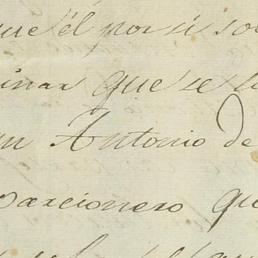 que él por si so
inar que se l
un Antonio de
parcionero qu